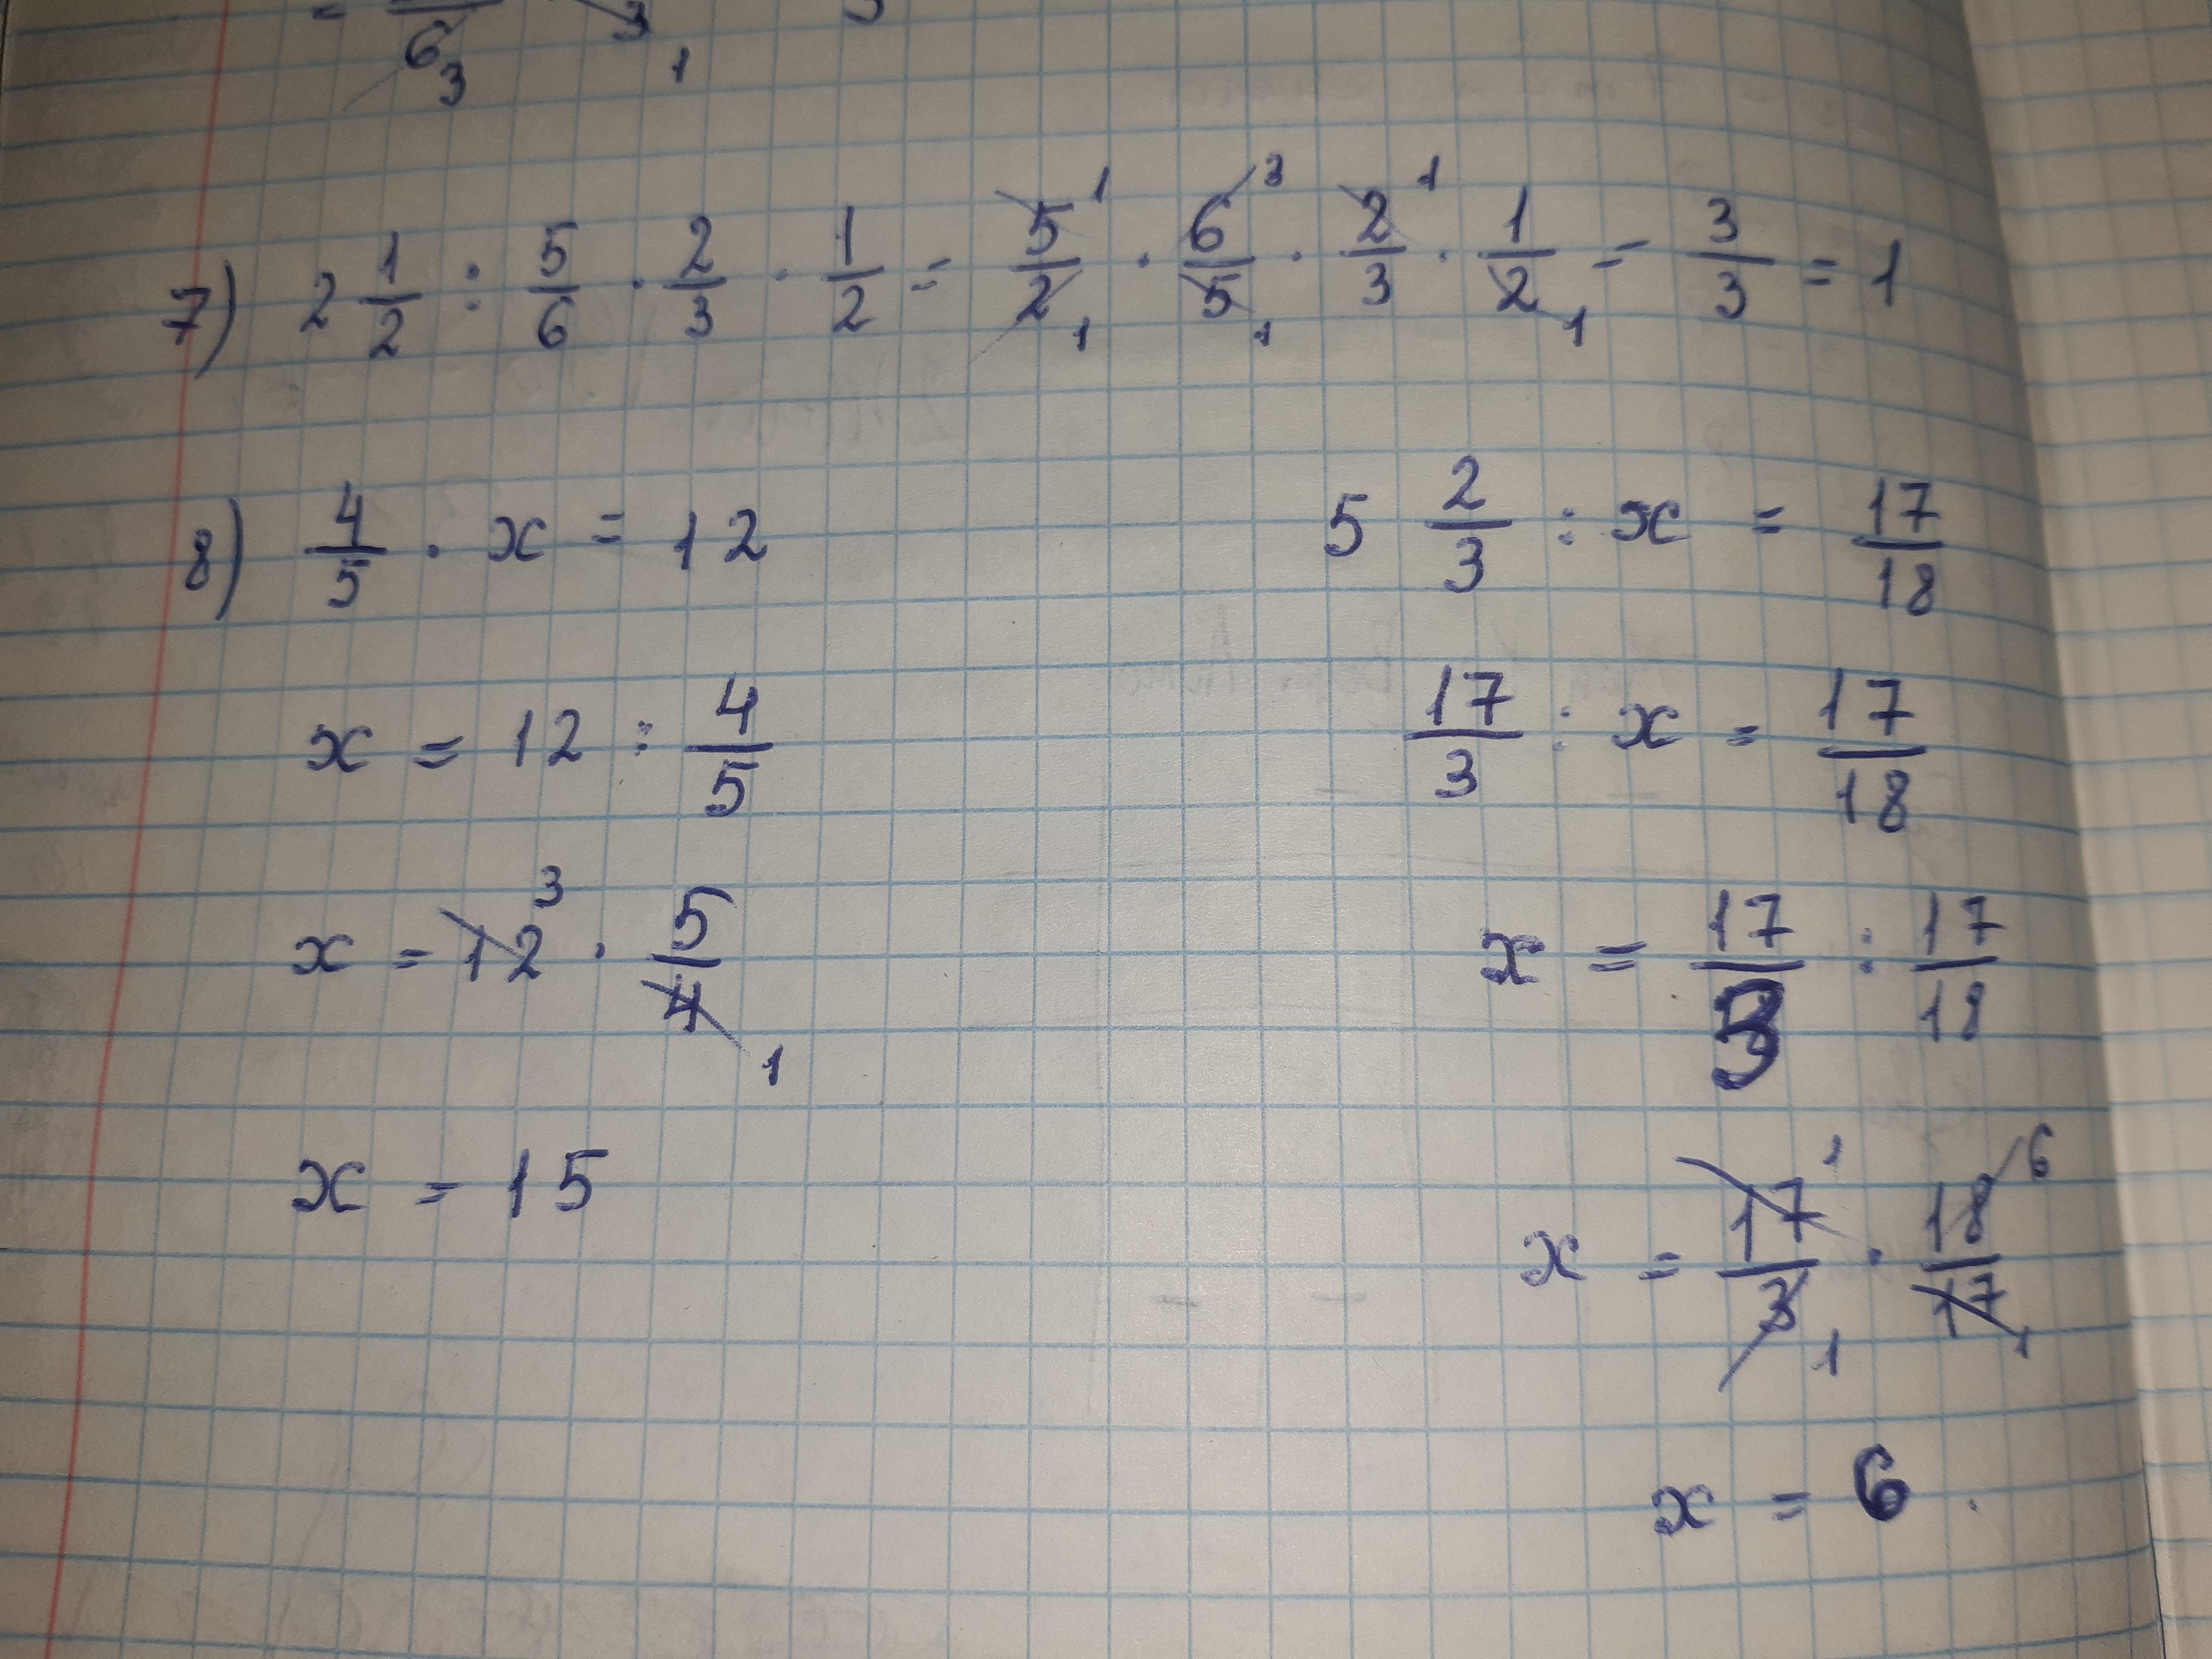 = 6 3 3 1
7) 2 1/2 : 5/6 · 2/3 · 1/2 = 5/2 1 1 · 6/5 3 1 · 2/3 1 · 1/2 1 = 3/3 = 1
8) 4/5 · x = 12
x = 12 : 4/5
x = 12 3 · 5/4 1
x = 15
5 2/3 : x = 17/18
17/3 : x = 17/18
x = 17/3 : 17/18
x = 17/3 1 1 · 18/17 6 1
x = 6 .